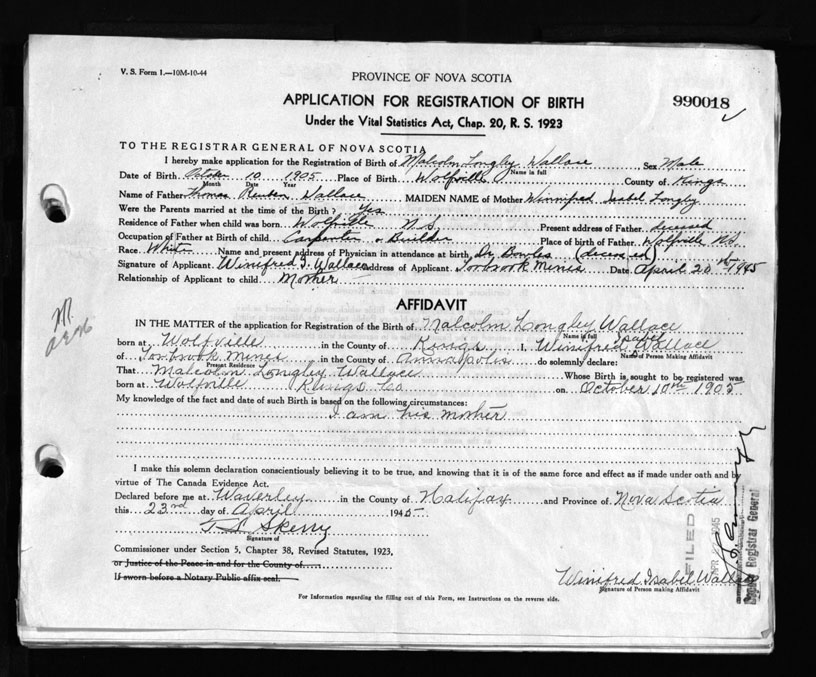 V. S. Form 1.—10M-10-44
PROVINCE OF NOVA SCOTIA
APPLICATION FOR REGISTRATION OF BIRTH
990018
Under the Vital Statistics Act, Chap. 20, R. S. 1923
TO THE REGISTRAR GENERAL OF NOVA SCOTIA
I hereby make application for the Registration of Birth of Malcolm Longley Wallace Sex Male
Name in full
Date of Birth October 10 1905 Place of Birth Wolfville County of Kings
Month Date Year
Name of Father Thomas Reuben Wallace MAIDEN NAME of Mother Winnifred Isabel Longley
Were the Parents married at the time of the Birth? Yes
Residence of Father when child was born Wolfville N.S. Present address of Father deceased
Occupation of Father at Birth of child Carpenter & Builder Place of birth of Father Wolfville N.S.
Race White Name and present address of Physician in attendance at birth Dr Bowles (deceased)
Signature of Applicant Winifred I. Wallace Address of Applicant Torbrook Mines Date April 20th 1945
Relationship of Applicant to child Mother
AFFIDAVIT
IN THE MATTER of the application for Registration of the Birth of Malcolm Longley Wallace
Name in full
born at Wolfville in the County of Kings I, Winifred Isabel Wallace
Name of Person Making Affidavit
of Torbrook Mines in the County of Annapolis do solemnly declare:
Present Residence
That Malcolm Longley Wallace Whose Birth is sought to be registered was
born at Wolfville Kings Co on October 10th 1905
My knowledge of the fact and date of such Birth is based on the following circumstances:
I am his mother
I make this solemn declaration conscientiously believing it to be true, and knowing that it is of the same force and effect as if made under oath and by
virtue of The Canada Evidence Act.
Declared before me at Waverley in the County of Halifax and Province of Nova Scotia
this 23rd day of April 1945
Skerry
Signature of
Commissioner under Section 5, Chapter 38, Revised Statutes, 1923,
or Justice of the Peace in and for the County of
If sworn before a Notary Public affix seal.
Winifred Isabel Wallace
Signature of Person making Affidavit
For Information regarding the filling out of this Form, see Instructions on the reverse side.
FILED
Deputy Registrar General